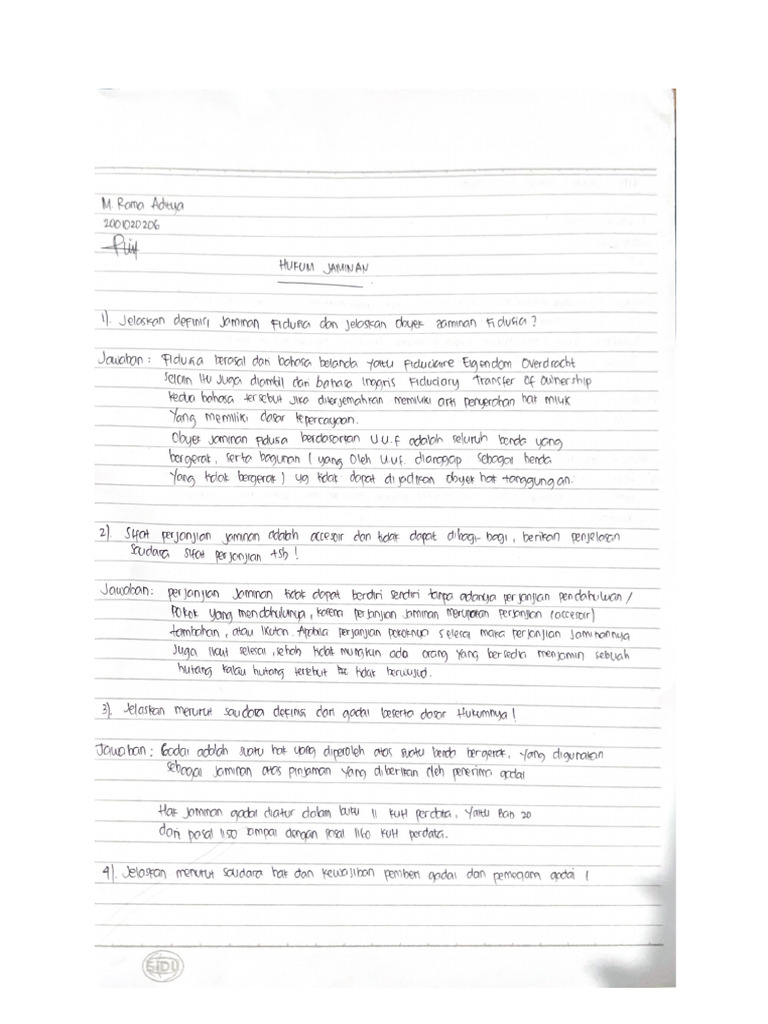 M. Rama Aditya
2001020206
HUKUM JAMINAN
1). Jelaskan definisi Jaminan Fidusia dan jelaskan obyek Jaminan Fidusia?
Jawaban : Fidusia berasal dari bahasa belanda yaitu Fiduciare Eigendom Overdracht
selain itu juga diambil dari bahasa Inggris Fiduciary Transfer of ownership
kedua bahasa tersebut jika diterjemahkan memiliki arti penyerahan hak milik
Yang memiliki dasar kepercayaan.
Obyek Jaminan fidusia berdasarkan U.U.F adalah seluruh benda yang
bergerak, serta bagunan ( yang oleh U.U.F. dianggap sebagai benda
yang tidak bergerak ) yg tidak dapat dijadikan obyek hak tanggungan.
2). Sifat perjanjian jaminan adalah accesoir dan tidak dapat dibagi-bagi, berikan penjelasan
saudara sifat perjanjian tsb !
Jawaban: perjanjian jaminan tidak dapat berdiri sendiri tanpa adanya perjanjian pendahuluan /
Pokok yang mendahulunya, karena perjanjian jaminan merupakan perjanjian (accesoir)
tambahan, atau ikutan. Apabila perjanjian pokoknya selesai maka perjanjian Jaminannya
Juga ikut selesai, sebab tidak mungkin ada orang yang bersedia menjamin sebuah
hutang kalau hutang tersebut tidak berwujud.
3). Jelaskan menurut saudara definisi dari gadai beserta dasar Hukumnya!
Jawaban : Gadai adalah suatu hak yang diperoleh atas suatu benda bergerak, yang digunakan
sebagai jaminan atas pinjaman yang diberikan oleh penerima gadai
Hak jaminan gadai diatur dalam buku II KUH perdata, yaitu Bab 20
dari pasal 1150 sampai dengan pasal 1160 KUH perdata.
4). Jelaskan menurut saudara hak dan kewajiban pemberi gadai dan pemegang gadai !
SIDU